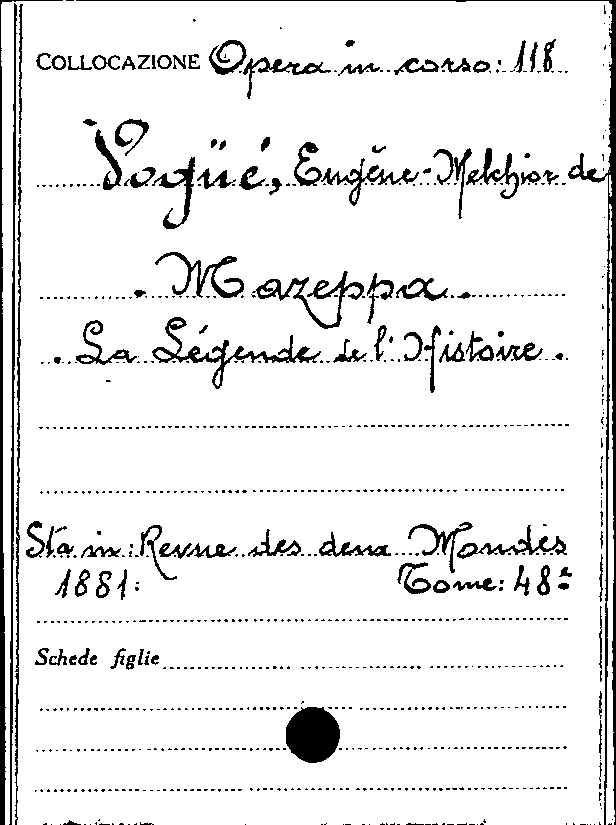 COLLOCAZIONE Opera in corso: 118
Vogüé, Eugène-Melchior de
. Mazeppa .
. La Légende de l'Histoire .
Sta in: Revue des deux Mondes
1881: Tome: 48e
Schede figlie